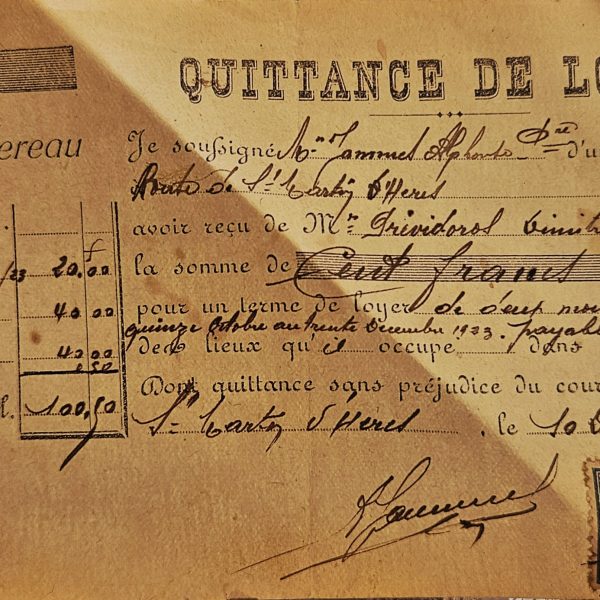 QUITTANCE DE LO
ereau
Je soussigné Mr Jammes Alphonse Pre d'u
Route de St Martin d'Hères
avoir reçu de Mr Prévidoros Dimit
/23 20.00
la somme de Cent francs
40 00
pour un terme de loyer de deux moi
quinze Octobre au trente Décembre 1923. payabl
40.00
des lieux qu'il occupe dans
0 50
Dont quittance sans préjudice du cour
100,50
St Martin d'Hères, le 10